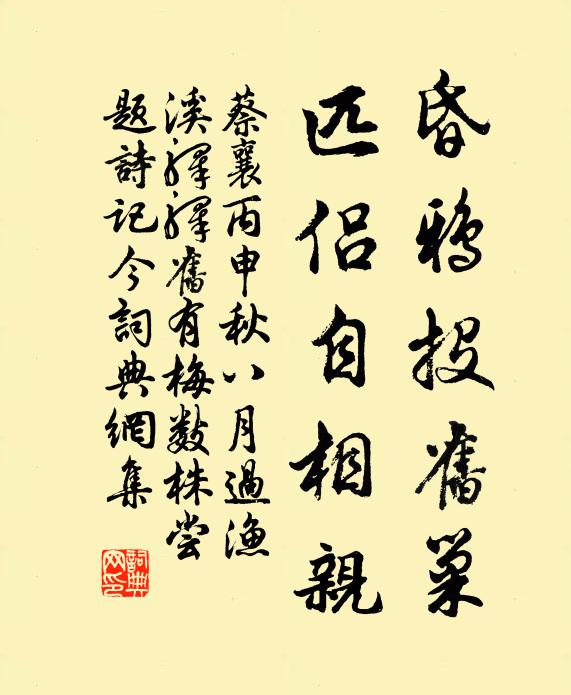 昏鴉投舊巢
匹侣自相親
蔡襄丙申秋八月過漁
溪驛驛舊有梅数株嘗
題詩記今詞典網集
詞典網印